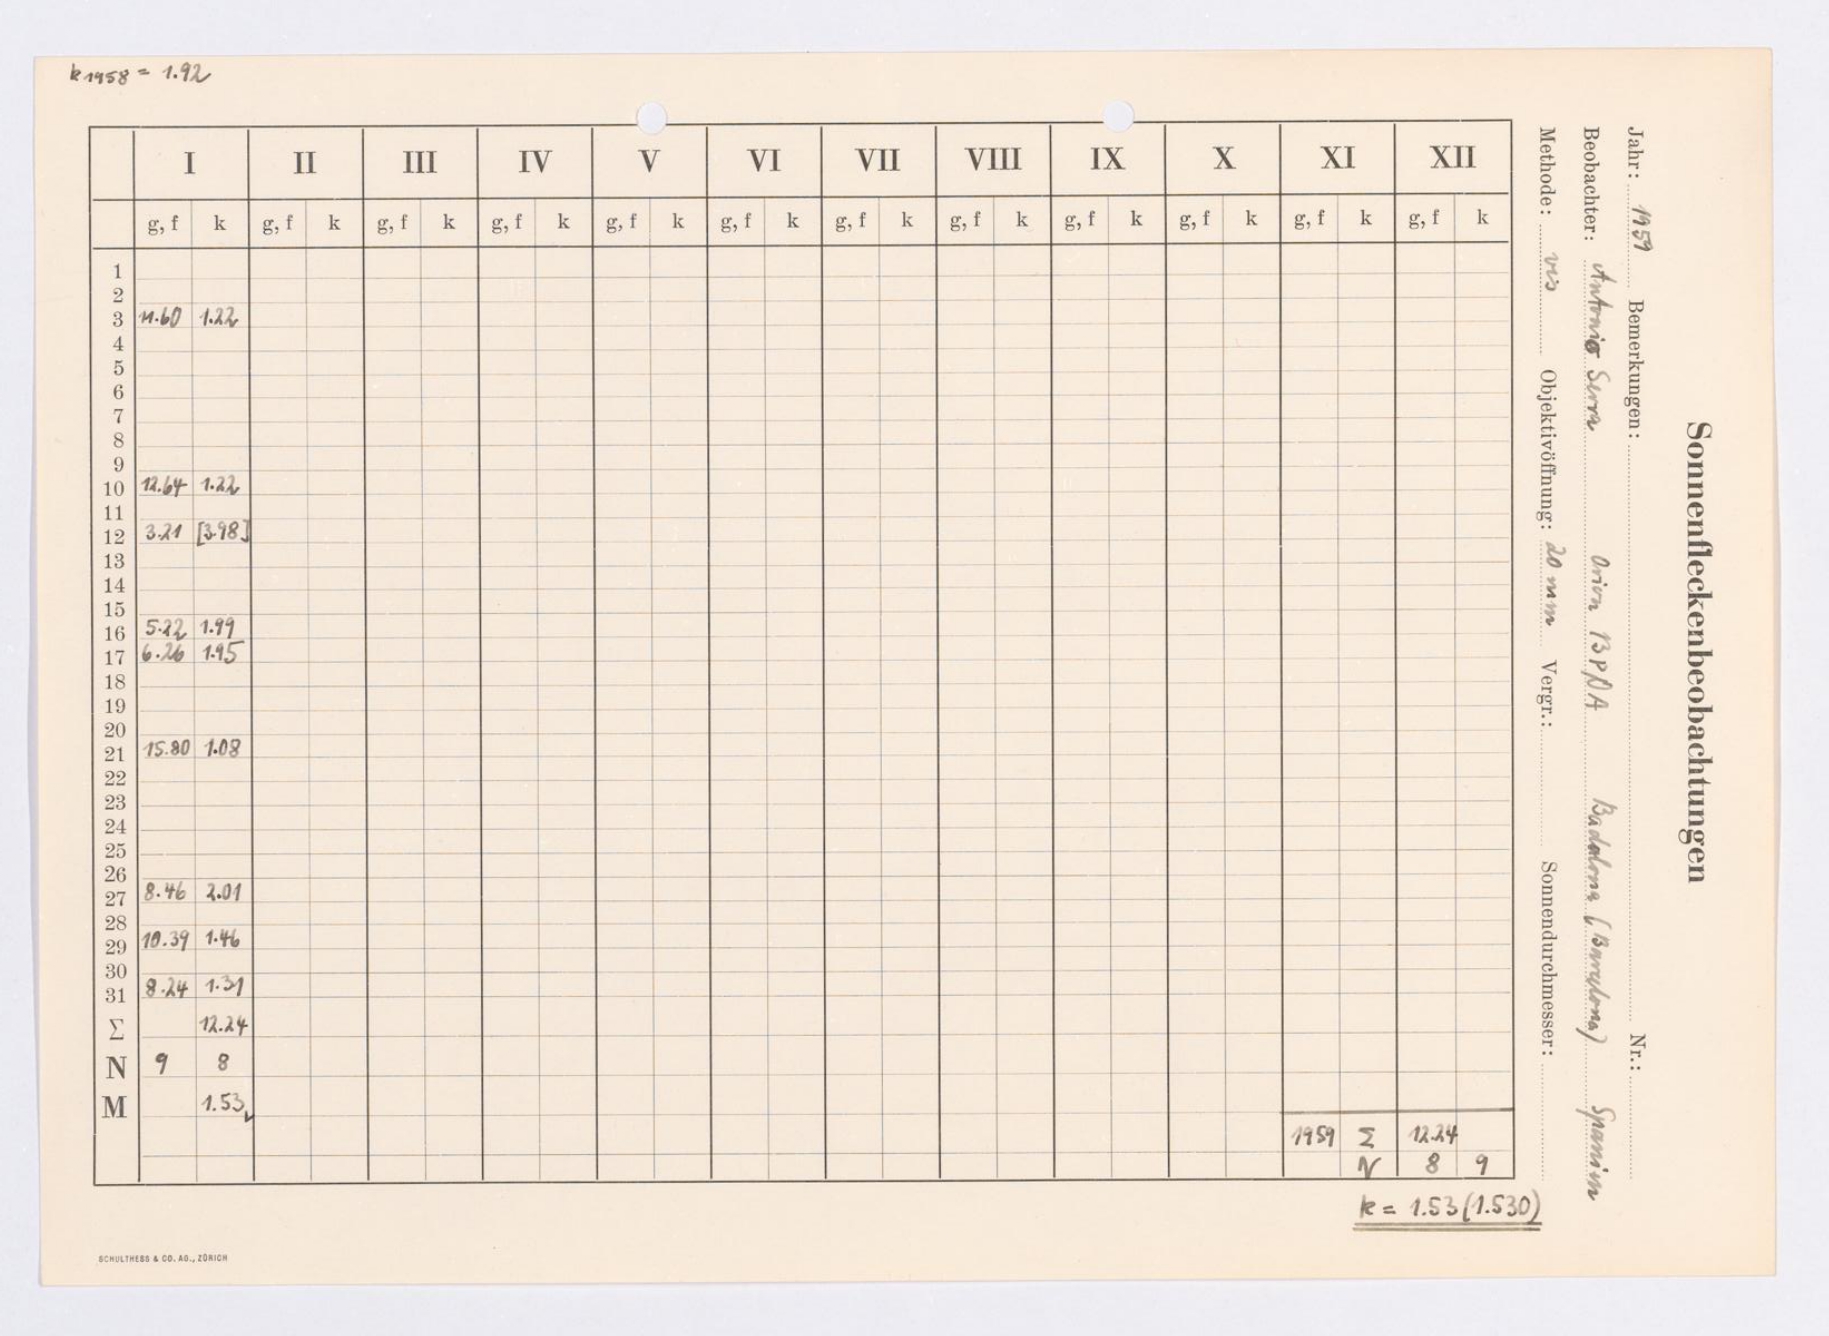 k 1958 = 1.92
Sonnenfleckenbeobachtungen
Jahr: 1959 Bemerkungen: Nr.:
Beobachter: Antonio Serra Orion Badalona (Barcelona) Spanien
Methode: vis Objektivöffnung: 20 mm Vergr.: Sonnendurchmesser:
I II III IV V VI VII VIII IX X XI XII
g, f k g, f k g, f k g, f k g, f k g, f k g, f k g, f k g, f k g, f k g, f k g, f k
1
2
3 11.60 1.22
4
5
6
7
8
9
10 12.64 1.22
11
12 3.21 [3.98]
13
14
15
16 5.22 1.99
17 6.26 1.95
18
19
20
21 15.80 1.08
22
23
24
25
26
27 8.46 2.01
28
29 10.39 1.46
30
31 8.24 1.31
Σ 12.24
N 9 8
M 1.53
1959 Σ 12.24
N 8 9
k = 1.53 (1.530)
SCHULTHESS & CO. AG., ZÜRICH